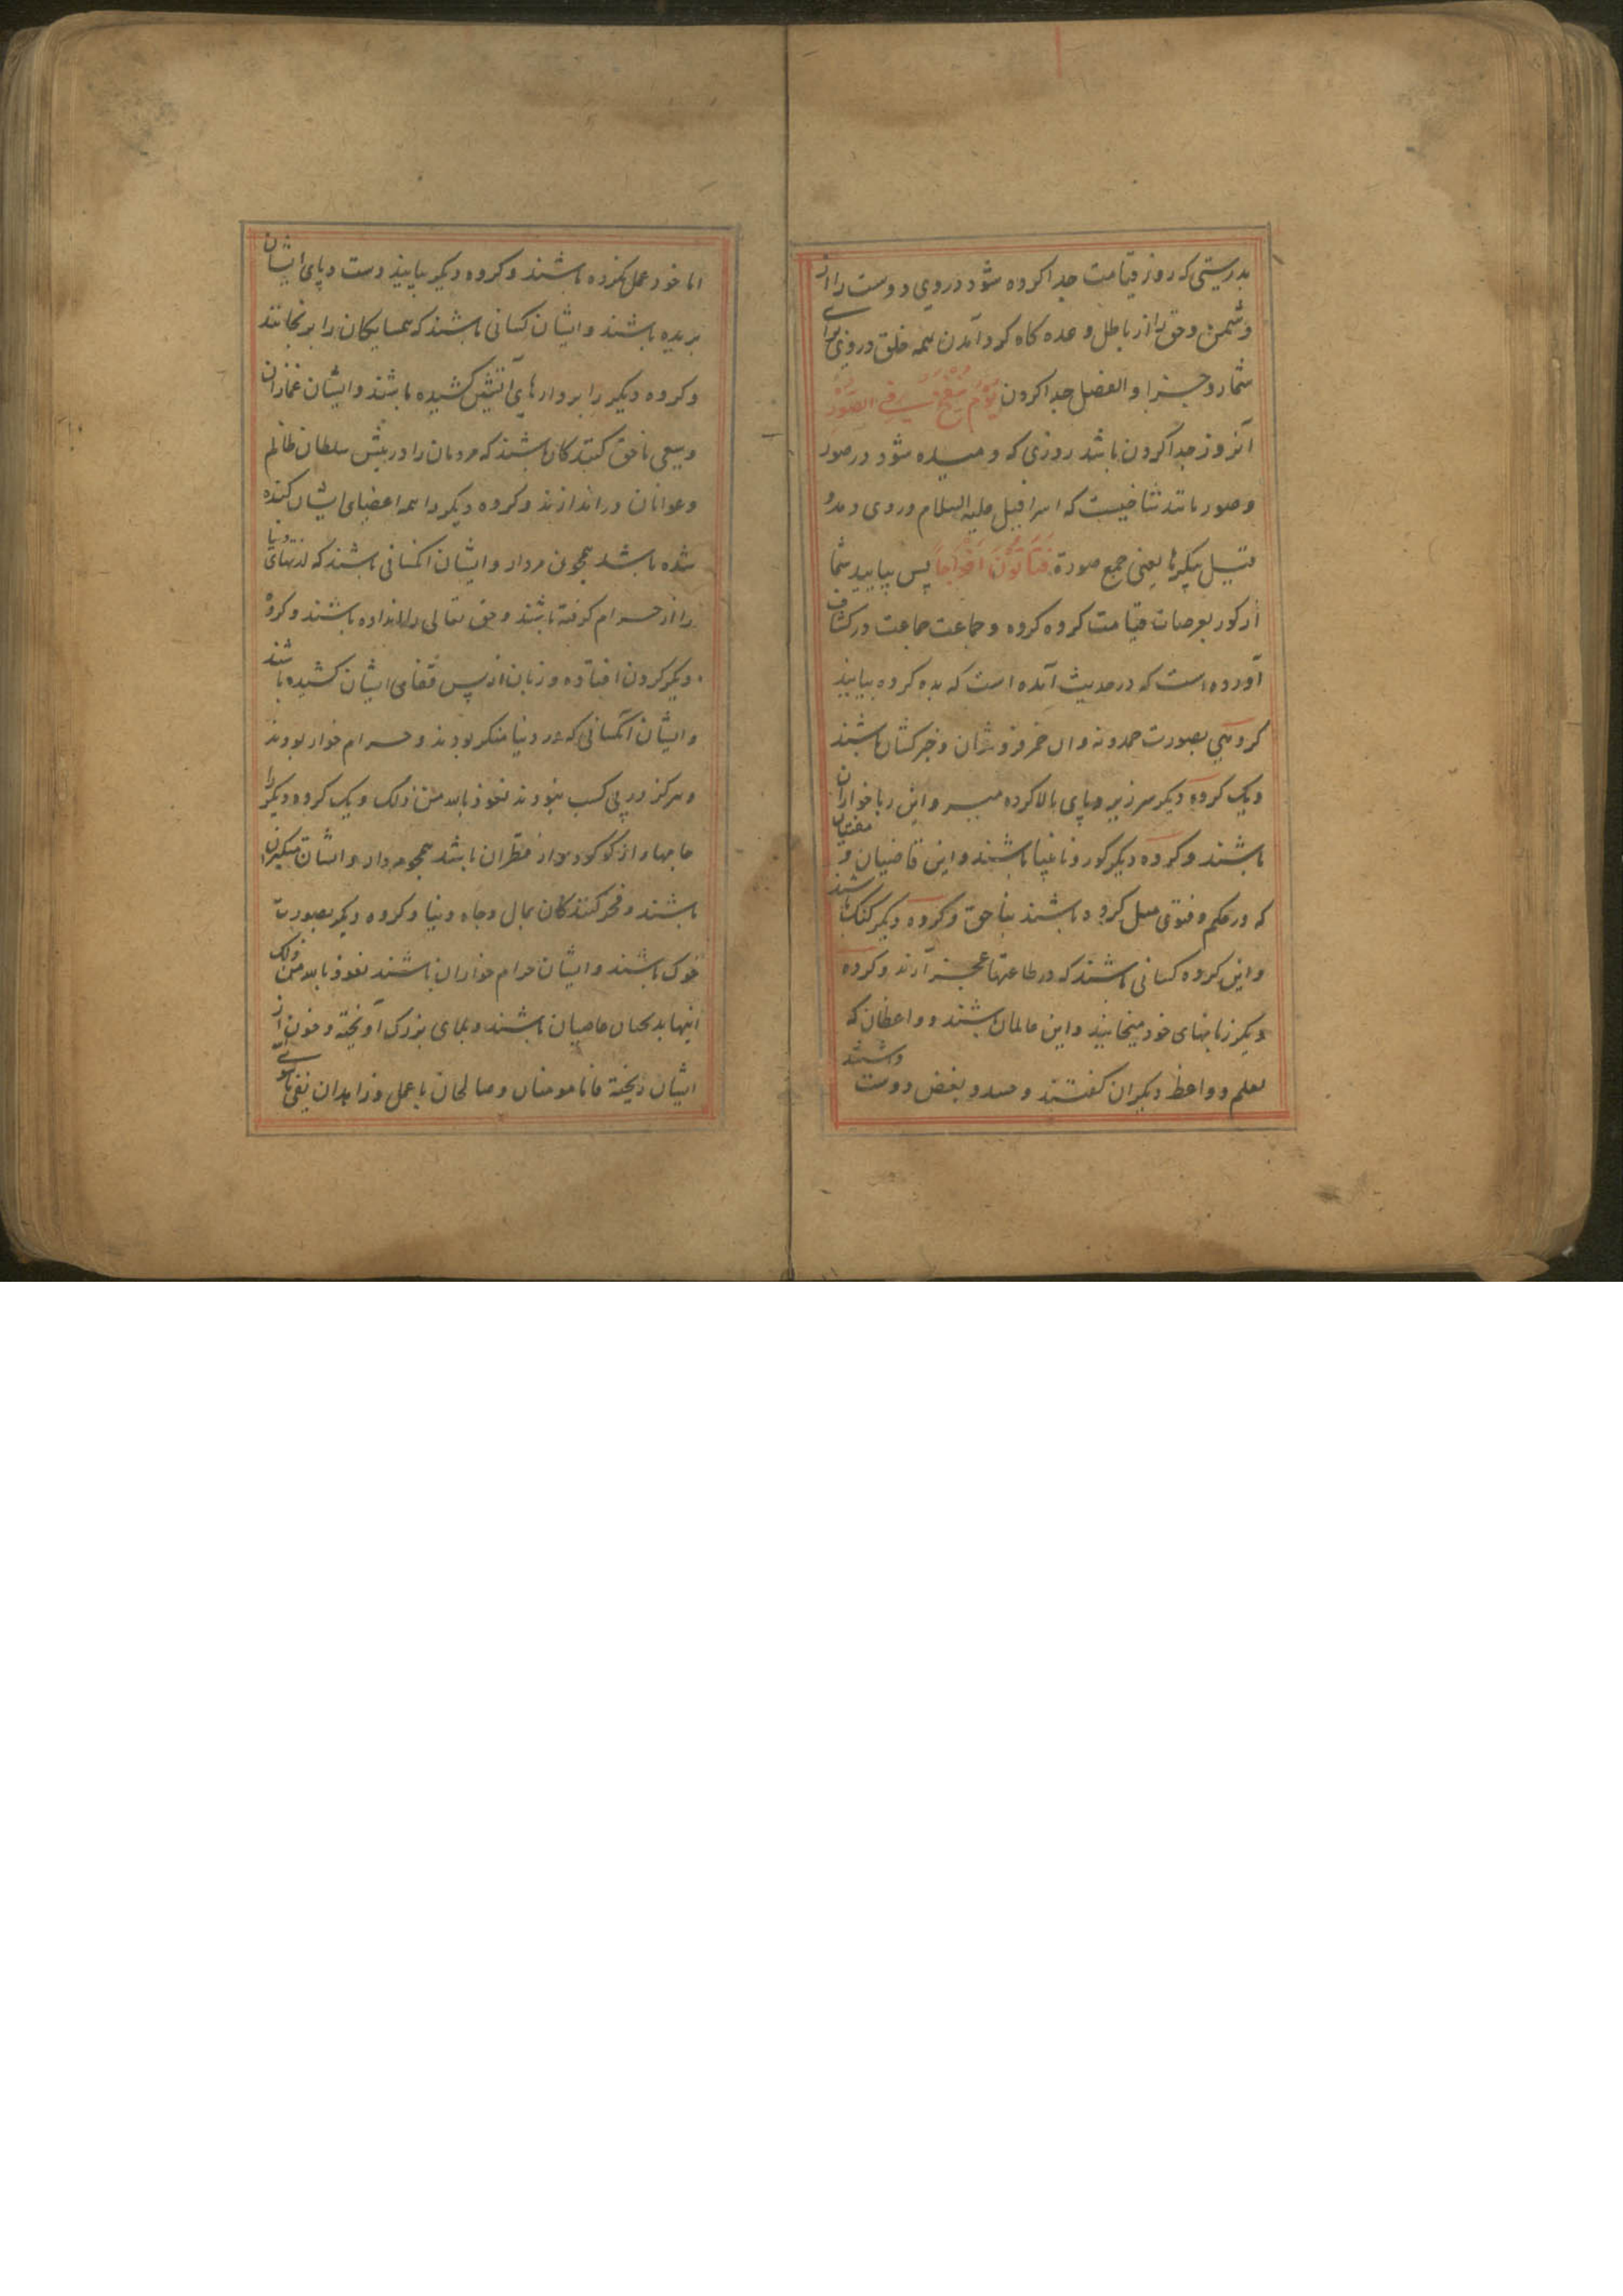 بدرستی که روز قیامت جدا کرده شود در وی دوست را از
دشمن و حق را از باطل وعده کاه کرد آمدن همه خلق در وی برای
شمار و جزا و الفصل جدا کردن یَوْمَ یُنْفَخُ فِي الصُّوْرِ
آنروز جدا کردن باشد روزی که دمیده شود در صور
و صور مانند شاخیست که اسرافیل علیه السلام در وی دمد و
قیل پیکرها یعنی جمع صورة فَتَأْتُوْنَ أَفْوَاجًا پس بیایید شما
از کور بعرصات قیامت کروه کروه و جماعت جماعت در کشاف
آورده است که در حدیث آمده است که بده کروه بیایند
کروهی بصورت حمدونه و ان خمر فروشان و خبرکشان باشند
و یک کروه دیکر سر زیر و پای بالا کرده میبر و این ربا خواران
باشند و کروه دیکر کور و نابینا باشند و این قاضیان و مفتیان
که در حکم و فتوی میل کرده باشند بناحق و کروه دیکر کنک باشند
و این کروه کسانی باشند که در طاعتها عجز آرند و کروه
دیکر زبانهای خود میخایند و این عالمان باشند و واعظان که
بعلم و واعظ دیکران کفتند و حسد و بغض دوست داشتند
اما خود عمل نکرده باشند و کروه دیکر بیایند دست و پای ایشان
بریده باشند و ایشان کسانی باشند که همسایکان را برنجانند
و کروه دیکر را بر دارهای آتشین کشیده باشند و ایشان غمازان
و سعی ناحق کنندکان باشند که مردمان را در پیش سلطان ظالم
و عوانان در اندازند و کروه دیکر را همه اعضای ایشان کنده
شده باشد همچون مردار و ایشان آنکسانی باشند که لذتهای دنیا
را از حرام کرفته باشند و حق تعالی را نداده باشند و کروه
دیکر کردن افتاده و زبان از پس قفای ایشان کشیده باشند
و ایشان آنکسانی که در دنیا منکر بودند و حرام خوار بودند
و هرکز در پی کسب نبودند نعوذ بالله من ذلک و یک کروه دیکر را
جامها از کوکرد و از قطران باشد همچو مردار و ایشان متکبران
باشند و فخر کنندکان بمال و جاه دنیا و کروه دیکر بصورت
خوک باشند و ایشان حرام خواران باشند نعوذ بالله من ذلک
اینها بدبختان عاصیان باشند و بلای بزرک آویخته و خون از
ایشان ریخته فاما مومنان و صالحان با عمل و زاهدان